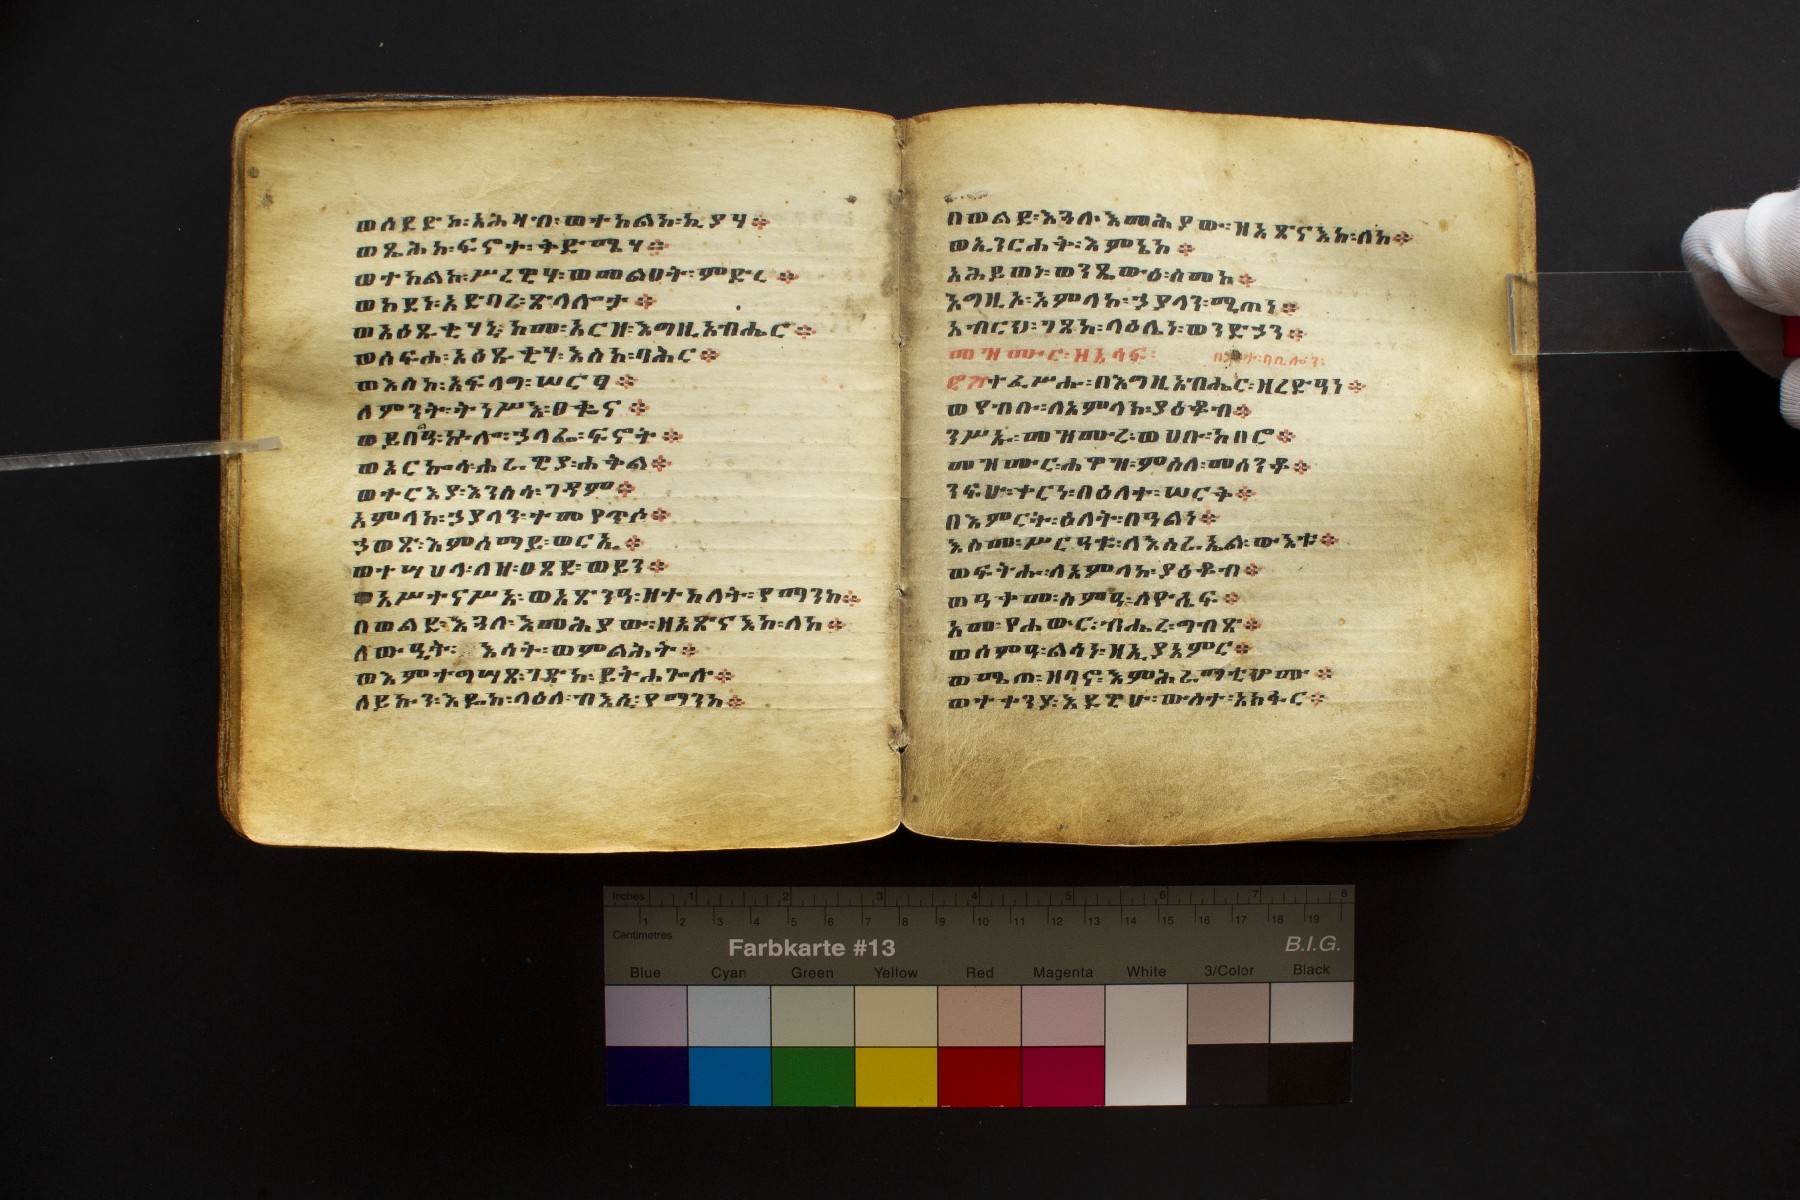 ወሰደድከ፡አሕዛበ፡ወተከልከ፡ኪያሃ፨
ወጼሕከ፡ፍኖተ፡ቅድሜሃ፨
ወተከልከ፡ሥረዊሃ፡ወመልዐት፡ምድረ፨
ወከደነ፡አድባረ፡ጽላሎታ፨
ወአዕጹቂሃኒ፡ከመ፡አርዘ፡እግዚአብሔር፨
ወሰፍሐ፡አዕጹቂሃ፡እስከ፡ባሕር፨
ወእስከ፡አፍላግ፡ሠርፃ፨
ለምንት፡ትነሥእ፡ፀቈና፨
ወይበዓ፡ኵሉ፡ኃላፌ፡ፍኖት፨
ወአርኰሳ፡ሐራዊያ፡ሐቅል፨
ወተርእያ፡እንስሳ፡ገዳም፨
አምላከ፡ኃያላን፡ተመየጥሶ፨
ኃወጽ፡እምሰማይ፡ወርኢ፨
ወተሣሀላ፡ለዛ፡ዐጸደ፡ወይን፨
ወአሥተናሥእ፡ወአጽንዓ፡ዘተከለት፡የማንከ፨
በወልደ፡እጓለ፡እመሕያው፡ዘአጽናእከ፡ለከ፨
ለውዒት፡እሳት፡ወምልሕት፨
ወእምተግሣጸ፡ገጽከ፡ይትሐጐሉ፨
ለይኩን፡እዴከ፡ላዕለ፡ብእሲ፡የማንከ፨
በወልደ፡እጓለ፡እመሕያው፡ዘአጽናእከ፡ለከ፨
ወኢንርሐቅ፡እምኔከ፨
አሕይወነ፡ወንጼውዕ፡ስመከ፨
እግዚኦ፡አምላከ፡ኃያላን፡ሚጠነ፨
አብርህ፡ገጸከ፡ላዕሌነ፡ወንድኃን፨
መዝሙር፡ዘአሳፍ፡
፹ተፈሥሑ፡በእግዚአብሔር፡ዘረድዓነ፨
ወየብቡ፡ለአምላከ፡ያዕቆብ፨
ንሥኡ፡መዝሙረ፡ወሀቡ፡ከበሮ፨
መዝሙር፡ሐዋዝ፡ምስለ፡መሰንቆ፨
ንፍሁ፡ቀርነ፡በዕለተ፡ሠርቅ፨
በእምርት፡ዕለት፡በዓልነ፨
እስመ፡ሥርዓቱ፡ለእስራኤል፡ውእቱ፨
ወፍትሑ፡ለአምላከ፡ያዕቆብ፨
ወዓቀመ፡ስምዓ፡ለዮሴፍ፨
አመ፡የሐውር፡ብሔረ፡ግብጽ፨
ወሰምዓ፡ልሳነ፡ዘኢያአምር፨
ወሜጠ፡ዘባኖ፡እምሕራማቲሆሙ፨
ወተቀንያ፡እደዊሁ፡ውስተ፡አከፋር፨
Inches 1 2 3 4 5 6 7 8
1 2 3 4 5 6 7 8 9 10 11 12 13 14 15 16 17 18 19
Centimetres
Farbkarte #13 B.I.G.
Blue Cyan Green Yellow Red Magenta White 3/Color Black